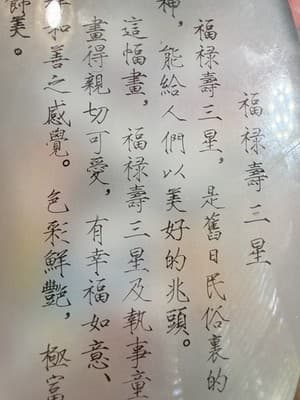 福禄壽三星
福禄壽三星，是舊日民俗裏的
神，能給人們以美好的兆頭。
這幅畫，福禄壽三星及執事童
畫得親切可愛，有幸福如意、
和善之感覺。色彩鮮艷，極富
飾美。